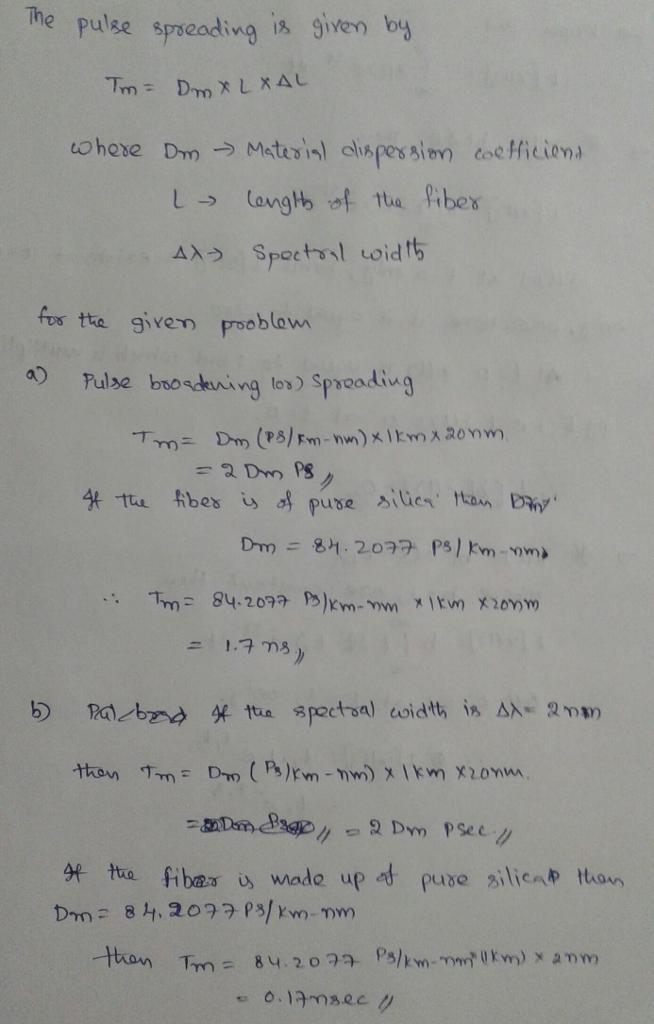 The pulse spreading is given by
Tm = Dm x L x ΔL
where Dm → Material dispersion coefficient
L → length of the fiber
Δλ → Spectral width
for the given problem
a) Pulse broadening (or) Spreading
Tm = Dm (Ps/Km-nm) x 1km x 20nm.
= 2 Dm Ps //
If the fiber is of pure silica then
Dm = 84.2077 Ps/Km-nm.
∴ Tm = 84.2077 Ps/Km-nm x 1km x 20nm
= 1.7 ns //
b) If the spectral width is Δλ = 2nm
then Tm = Dm (Ps/Km-nm) x 1km x 20nm.
= 2 Dm Psec //
If the fiber is made up of pure silica then
Dm = 84.2077 Ps/Km-nm
then Tm = 84.2077 Ps/Km-nm (1km) x 2nm
= 0.17nsec //